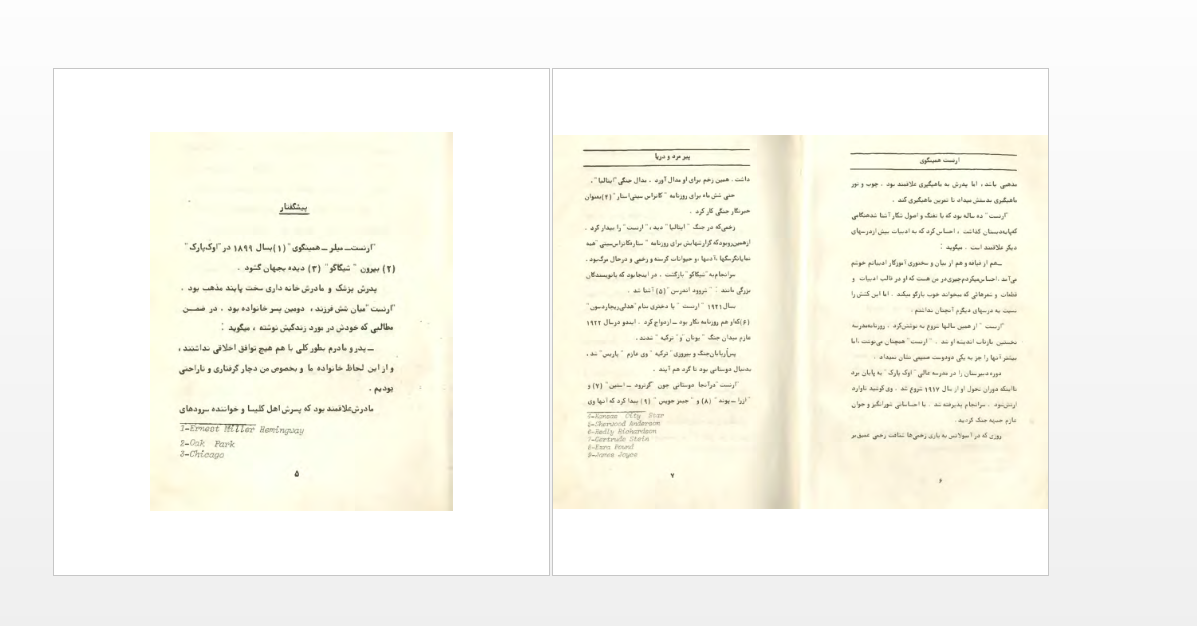 پیشگفتار
"ارنست ــ میلر ــ همینگوی" (۱) بسال ۱۸۹۹ در "اوک‌پارک"
(۲) بیرون "شیکاگو" (۳) دیده بجهان گشود .
پدرش پزشک و مادرش خانه داری سخت پابند مذهب بود .
"ارنست" میان شش فرزند ، دومین پسر خانواده بود . در ضمــن
مطالبی که خودش در مورد زندگیش نوشته ، میگوید :
ــ پدر و مادرم بطور کلی با هم هیچ توافق اخلاقی نداشتند ،
و از این لحاظ خانواده ما و بخصوص من دچار گرفتاری و ناراحتی
بودیم .
مادرش علاقمند بود که پسرش اهل کلیسا و خواننده سرودهای
1-Ernest Miller Hemingway
2-Oak Park
3-Chicago
۵
ارنست همینگوی
مذهبی باشد ، اما پدرش به ماهیگیری علاقمند بود . چوب و تور
ماهیگیری بدستش میداد تا تمرین ماهیگیری کند .
"ارنست" ده ساله بود که با تفنگ و اصول شکار آشنا شد هنگامی
که پا به دبستان گذاشت ، احساس کرد که به ادبیات بیش از درسهای
دیگر علاقمند است . میگوید :
ــ هم از قیافه و هم از بیان و سخنوری آموزگار ادبیاتم خوشم
می‌آمد . احساس میکردم چیزی در من هست که او در قالب ادبیات و
قطعات و شعرهائی که میخواند خوب بازگو میکند . اما این کشش را
نسبت به درسهای دیگرم آنچنان نداشتم .
"ارنست" از همین سالها شروع به نوشتن کرد . روزنامه مدرسه
نخستین بازتاب اندیشه او شد . "ارنست" همچنان می‌نوشت ، اما
بیشتر آنها را جز به یکی دو دوست صمیمی نشان نمیداد .
دوره دبیرستان را در مدرسه عالی "اوک پارک" به پایان برد
تا اینکه دوران تحول او از سال ۱۹۱۷ شروع شد . وی کوشید تا وارد
ارتش شود . سرانجام پذیرفته شد . با احساساتی شورانگیز و جوان
عازم جبهه جنگ گردید .
روزی که در آمبولانس به یاری زخمی‌ها شتافت زخمی عمیق بر
۶
پیر مرد و دریا
داشت . همین زخم برای او مدال آورد . مدال جنگی "ایتالیا" .
حتی شش ماه برای روزنامه "کانزاس سیتی استار" (۴) بعنوان
خبرنگار جنگی کار کرد .
زخمی‌که در جنگ "ایتالیا" دید ، "ارنست" را بیدار کرد .
از همین‌رو بود که گزارشهایش برای روزنامه "ستاره کانزاس سیتی" همه
نمایانگر سگها ، آدمها ، و حیوانات گرسنه و زخمی و در حال مرگ بود .
سرانجام به "شیکاگو" بازگشت . در اینجا بود که با نویسندگان
بزرگی مانند : "شروود اندرسن" (۵) آشنا شد .
بسال ۱۹۲۱ "ارنست" با دختری بنام "هدلی ریچاردسون"
(۶) که او هم روزنامه نگار بود ــ ازدواج کرد . ایندو در سال ۱۹۲۲
عازم میدان جنگ "یونان" و "ترکیه" شدند .
پس از پایان جنگ و پیروزی "ترکیه" وی عازم "پاریس" شد ،
بدنبال دوستانی بود تا گرد هم آیند .
"ارنست" در آنجا دوستانی چون "گرترود ــ استین" (۷) و
"ازرا ــ پوند" (۸) و "جیمز جویس" (۹) پیدا کرد که آنها وی
4-Kansas City Star
5-Sherwood Anderson
6-Hadly Richardson
7-Gertrude Stein
8-Ezra Pound
9-James Joyce
۷